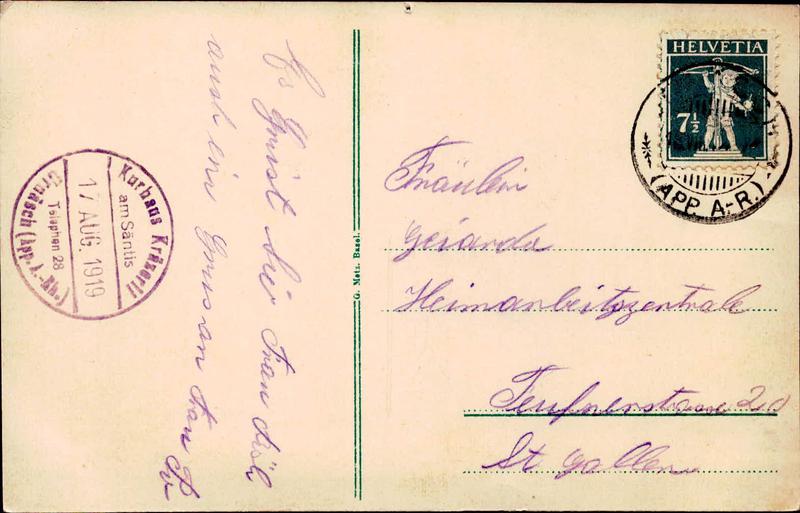 HELVETIA
7½
(APP. A.-R.)
Kurhaus Kräzerli
am Säntis
17 AUG. 1919
Telephon 28
Urnäsch (App. A.-Rh.)
G. Metz, Basel.
Es Grüsst Sie Frau
auch ein Gruss an Frau
Fräulein
Heimarbeitszentrale
Teufnerstrasse
St Gallen